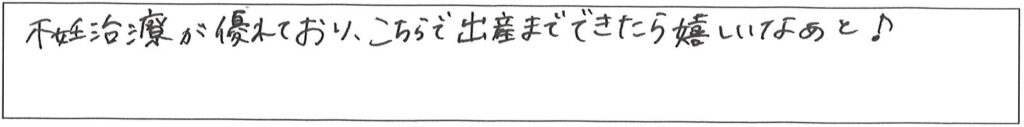 不妊治療が優れており、こちらで出産までできたら嬉しいなあと♪